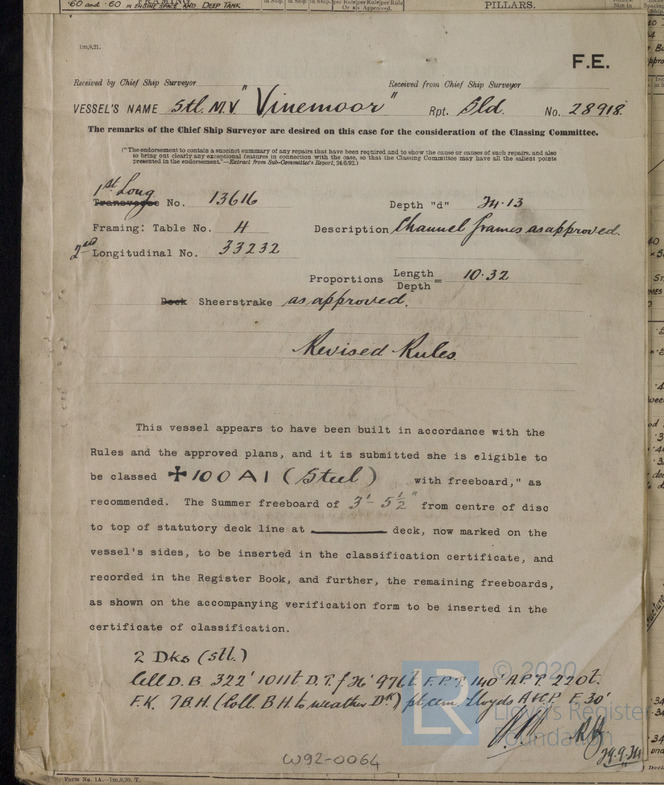 .60 and .60 in ENGINE SPACE AND DEEP TANK.
PILLARS.
1m,9,21.
F.E.
Received by Chief Ship Surveyor
Received from Chief Ship Surveyor
VESSEL'S NAME Stl. M.V "Vinemoor" Rpt. Sld. No. 28918.
The remarks of the Chief Ship Surveyor are desired on this case for the consideration of the Classing Committee.
("The endorsement to contain a succinct summary of any repairs that have been required and to show the cause or causes of such repairs, and also
to bring out clearly any exceptional features in connection with the case, so that the Classing Committee may have all the salient points
presented in the endorsement."—Extract from Sub-Committee's Report, 24/6/92.)
1st Long
Transverse No. 13616 Depth "d" 24.13
Framing: Table No. H Description Channel frames as approved.
2nd Longitudinal No. 33232
Proportions Length Depth = 10.32
Deck Sheerstrake as approved.
Revised Rules
This vessel appears to have been built in accordance with the
Rules and the approved plans, and it is submitted she is eligible to
be classed ✠100A1 (Steel) with freeboard," as
recommended. The Summer freeboard of 3'-5½" from centre of disc
to top of statutory deck line at deck, now marked on the
vessel's sides, to be inserted in the classification certificate, and
recorded in the Register Book, and further, the remaining freeboards,
as shown on the accompanying verification form to be inserted in the
certificate of classification.
2 Dks (stl.)
Cell D.B 322' 1011t D.T.f 26' 976t. F.P.T. 140t A.P.T. 220t.
F.K. 7B.H. (Coll. B.H. to weather Dk) pt. cem. Lloyds A&CP. F.30'
24.9.24
LR
© 2020
Lloyd's Register
Foundation
W92-0064
Form No. 1A.—1m,9,20. T.